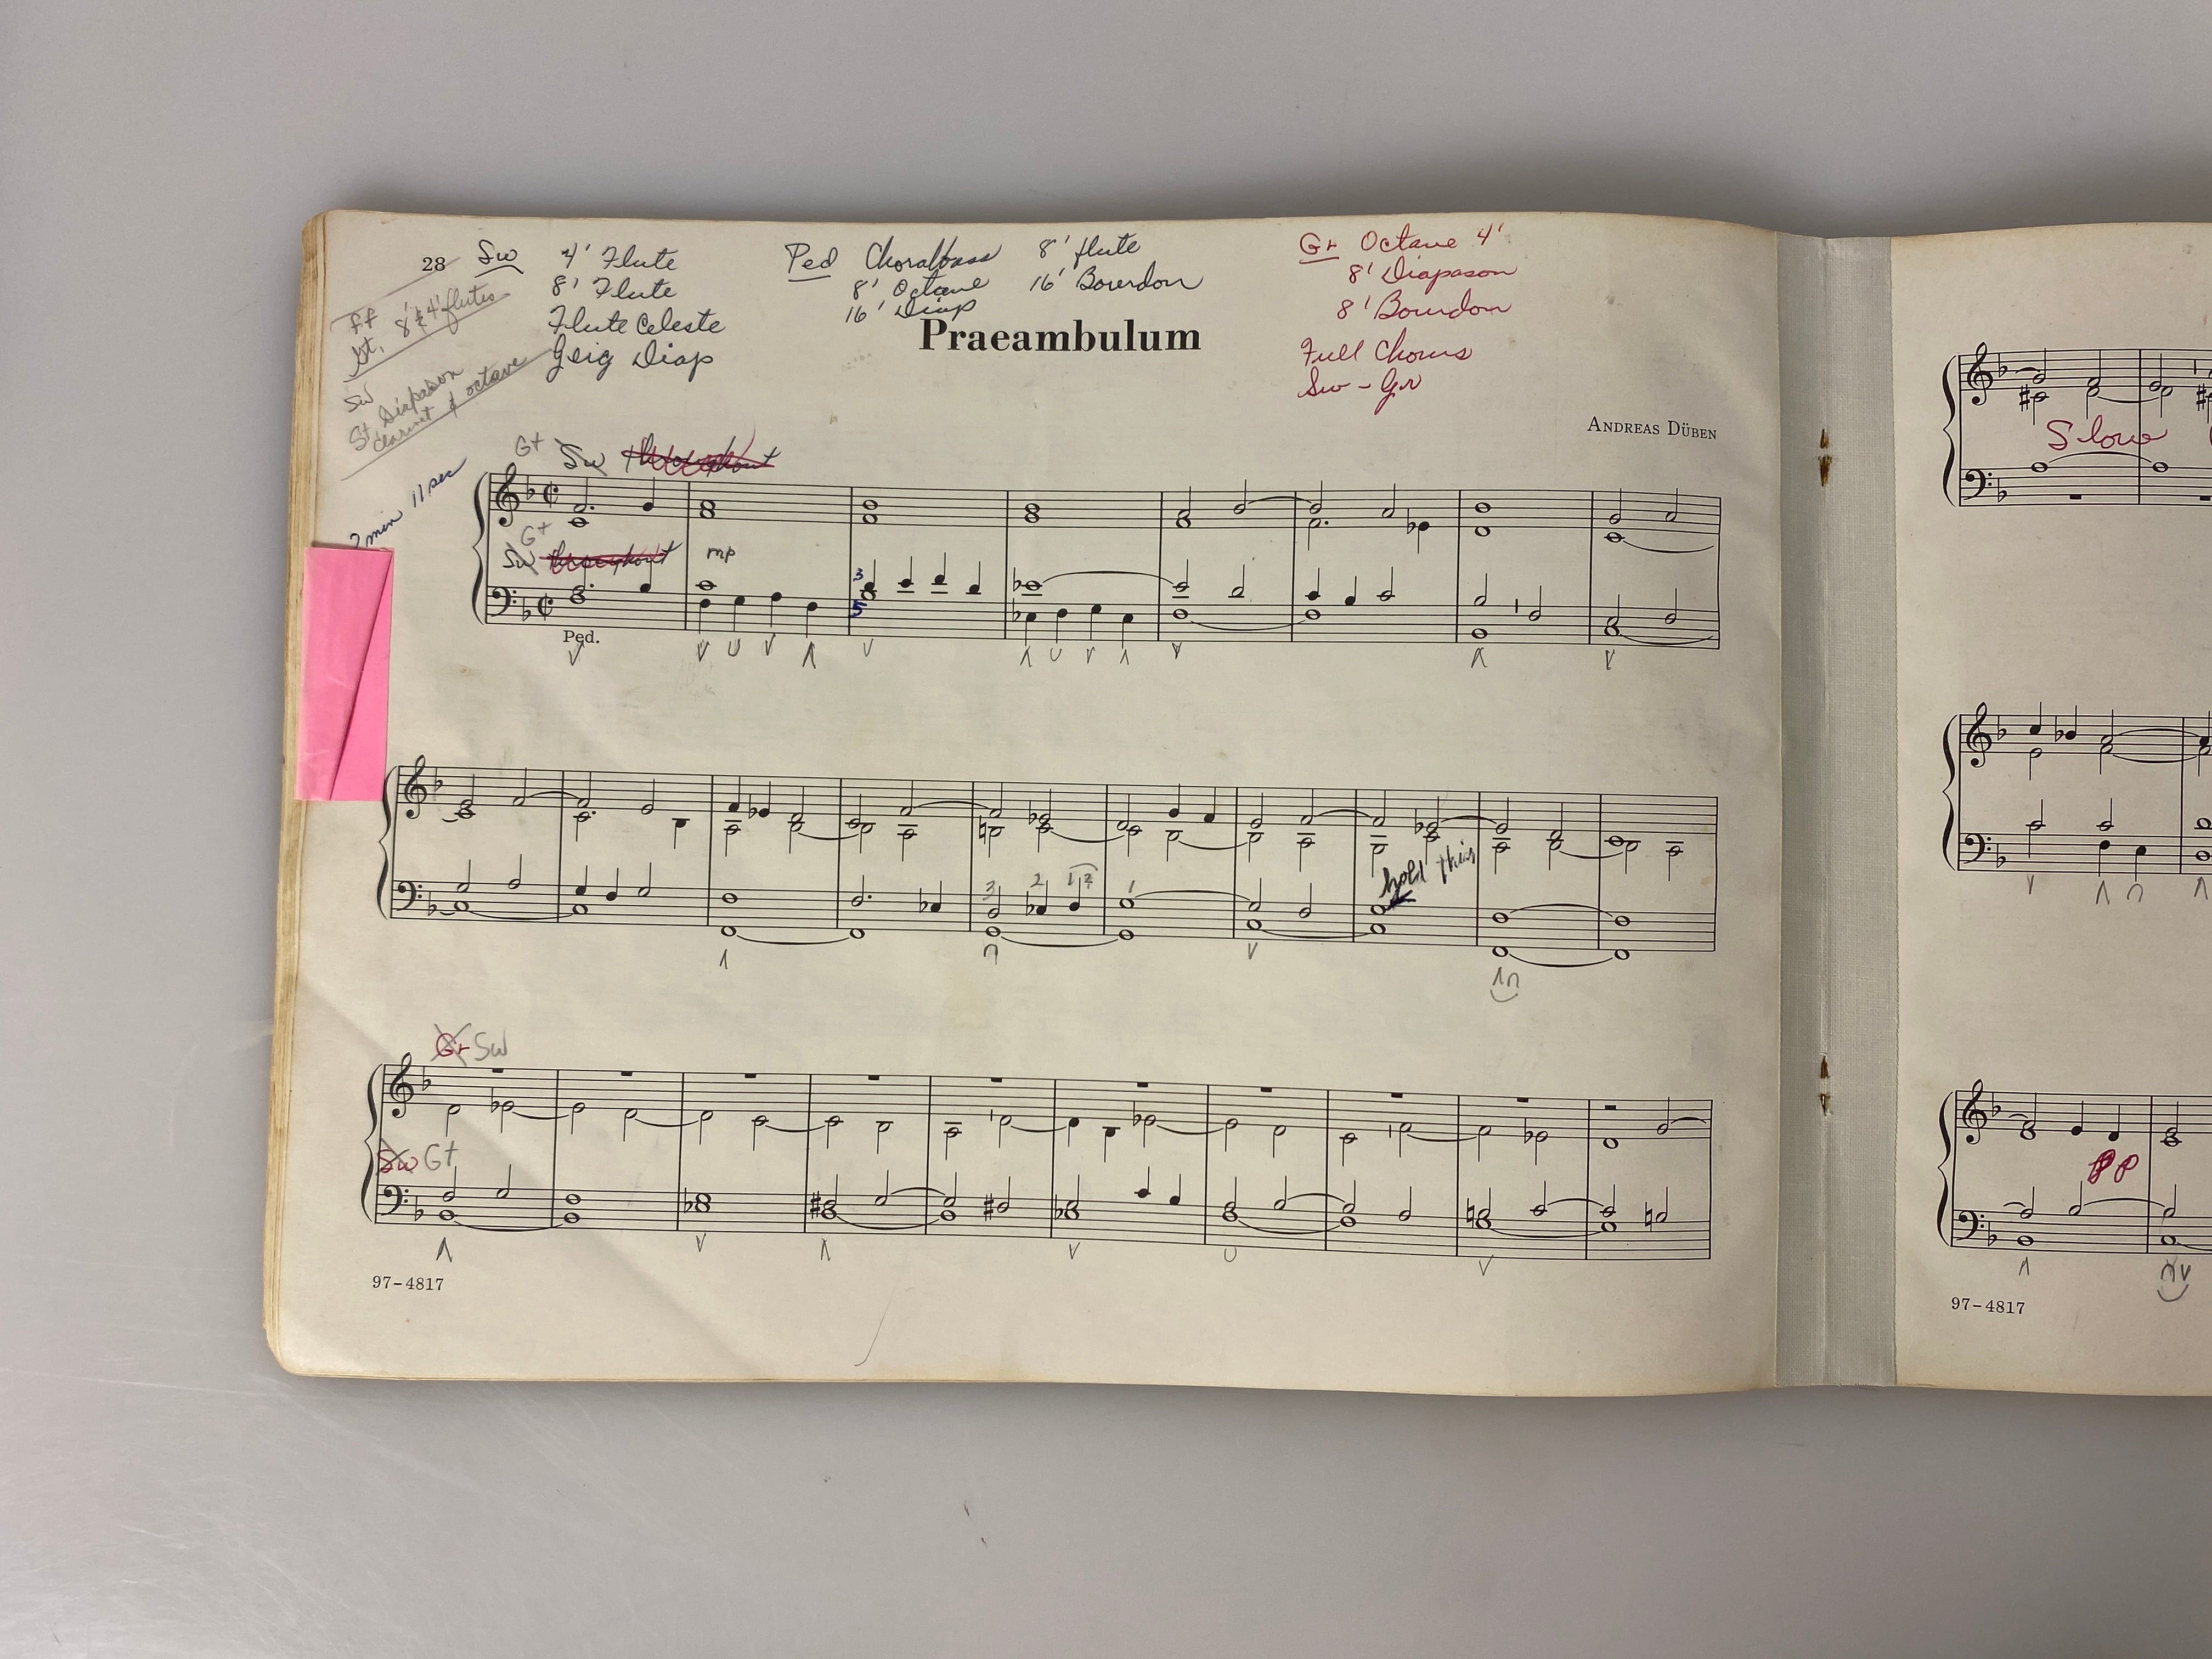 28
Sw 4' Flute
8' Flute
Flute Celeste
Geig Diap
Ped Choralbass 8' flute
8' Octane 16' Bourdon
16' Diap
Gr Octave 4'
8' Diapason
8' Bourdon
Full Chorus
Sw - Gr
ff
St. 8' & 4' flutes
Sw
St. Diapason
Clarinet & octave
2 min 11 sec
Praeambulum
ANDREAS DÜBEN
Gt Sw throughout
Gt
Sw throughout mp
3
5
Ped.
3 2 1 2 1
hold this
Gr Sw
Sw Gt
97-4817
Slow
pp
97-4817